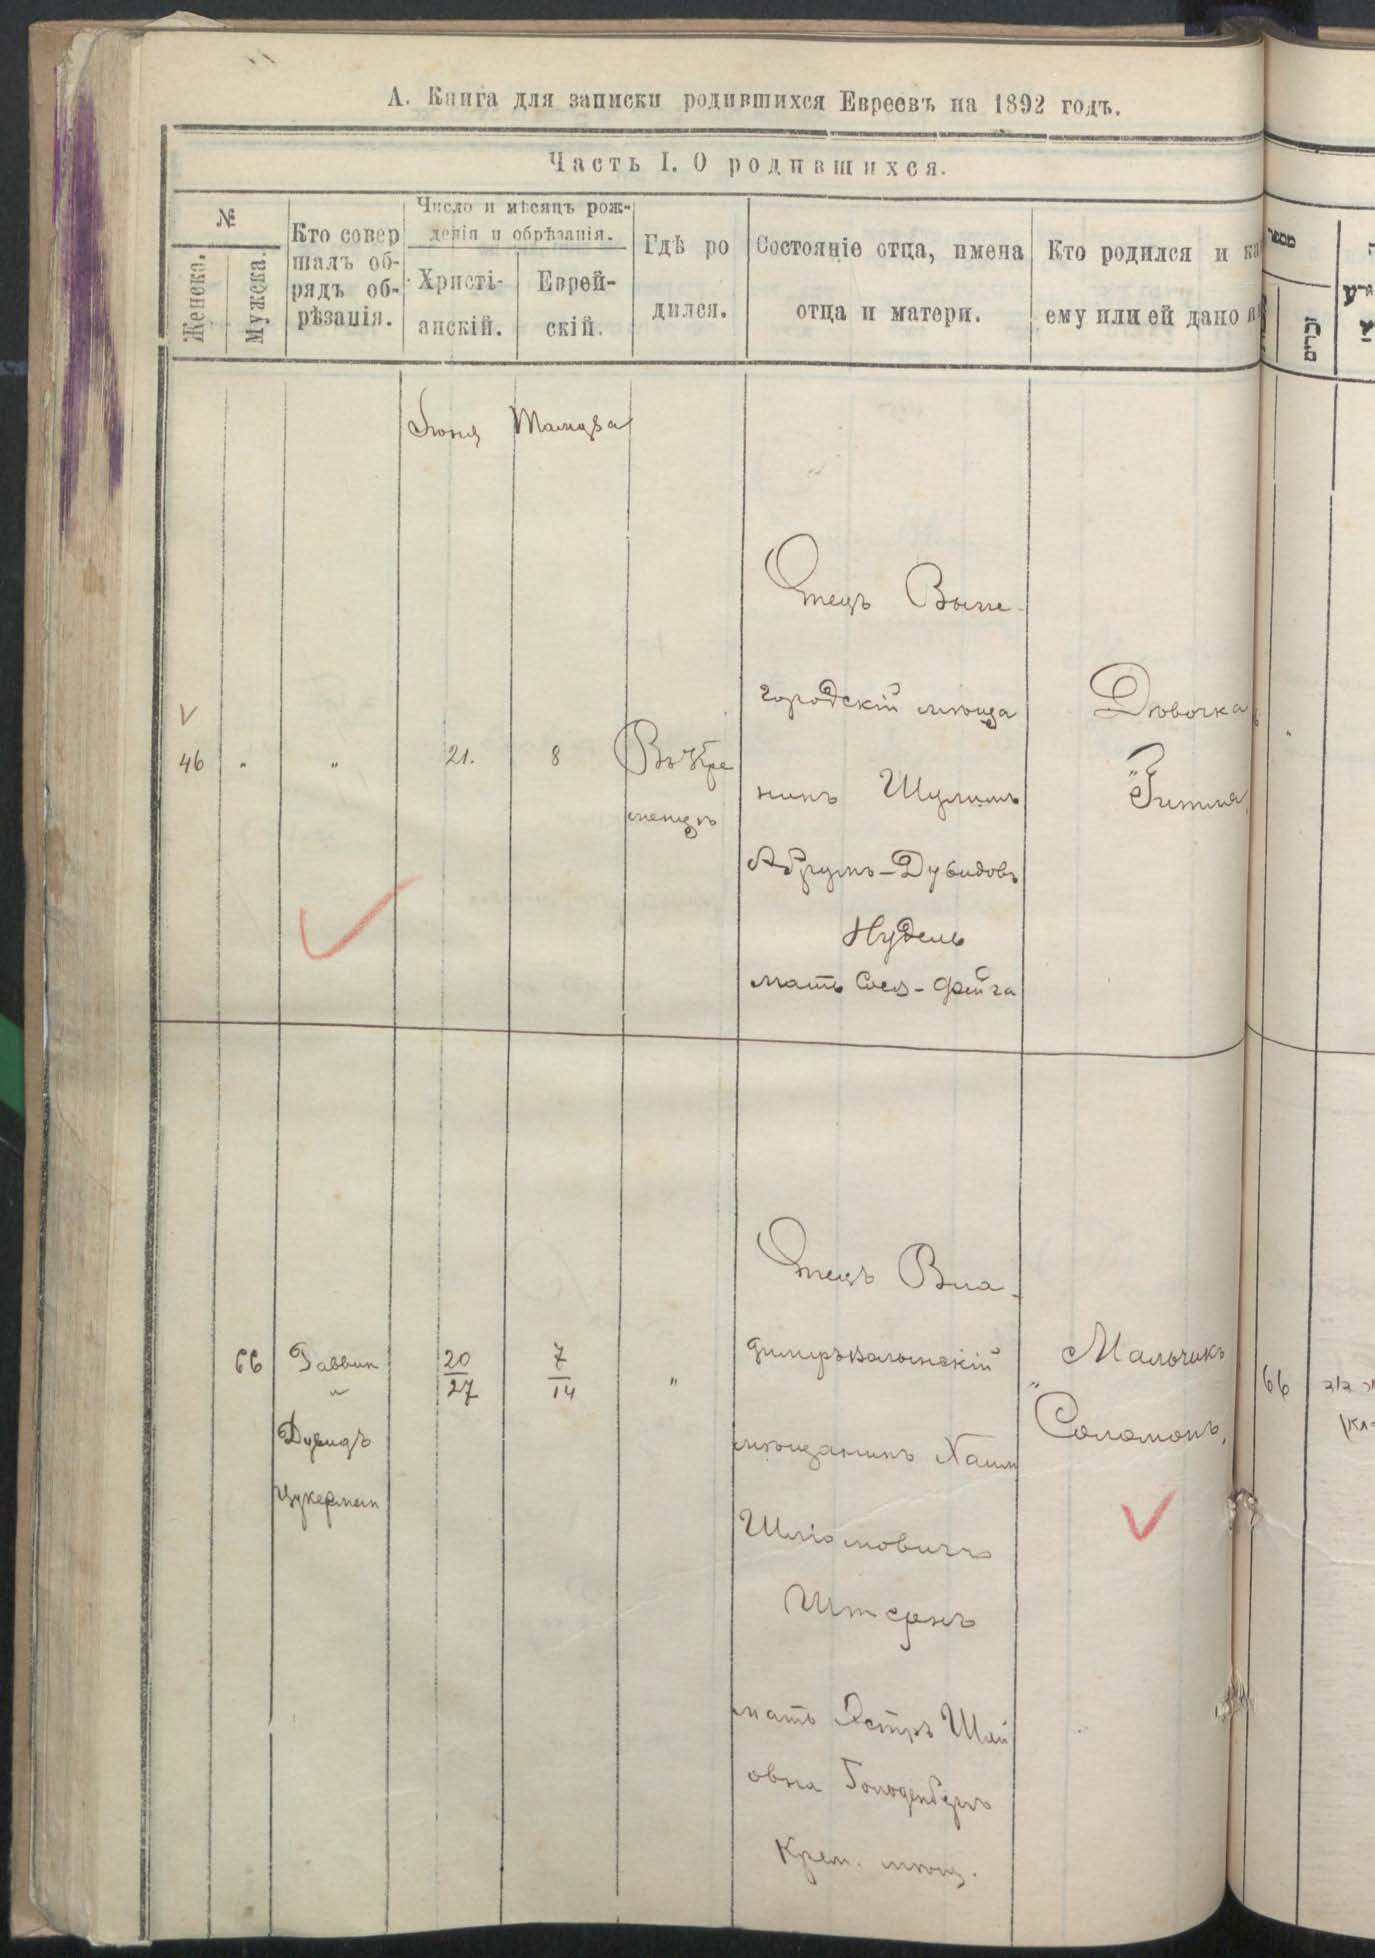 А. Книга для записки родившихся Евреевъ на 1892 годъ.
Часть I. О родившихся.
№
Женска.
Мужска.
Кто совер
шалъ об-
рядъ об-
рѣзанія.
Число и мѣсяцъ рож-
денія и обрѣзанія.
Христі-
анскій.
Еврей-
скій.
Гдѣ ро
дился.
Состояніе отца, имена
отца и матери.
Кто родился и ка
ему или ей дано
מספר
זכרים
Іюня Тамуза
46 " " 21. 8
Въ Кре
менцѣ
Отецъ Выше-
городскій мѣща
нинъ Шулимъ
Абрумъ-Дувидовъ
Нудель
мать Сося-Фейга
Дѣвочка
"Гитля"
66
Раввин
Дувидъ
Цукерман
20
27
7
14
"
Отецъ Вла-
димірѣволынскій
мѣщанинъ Хаим
Шліомовичъ
Штернъ
мать Эстръ
овна Голденбергъ
Крем. мѣщ.
Мальчикъ
"Соломонъ"
66